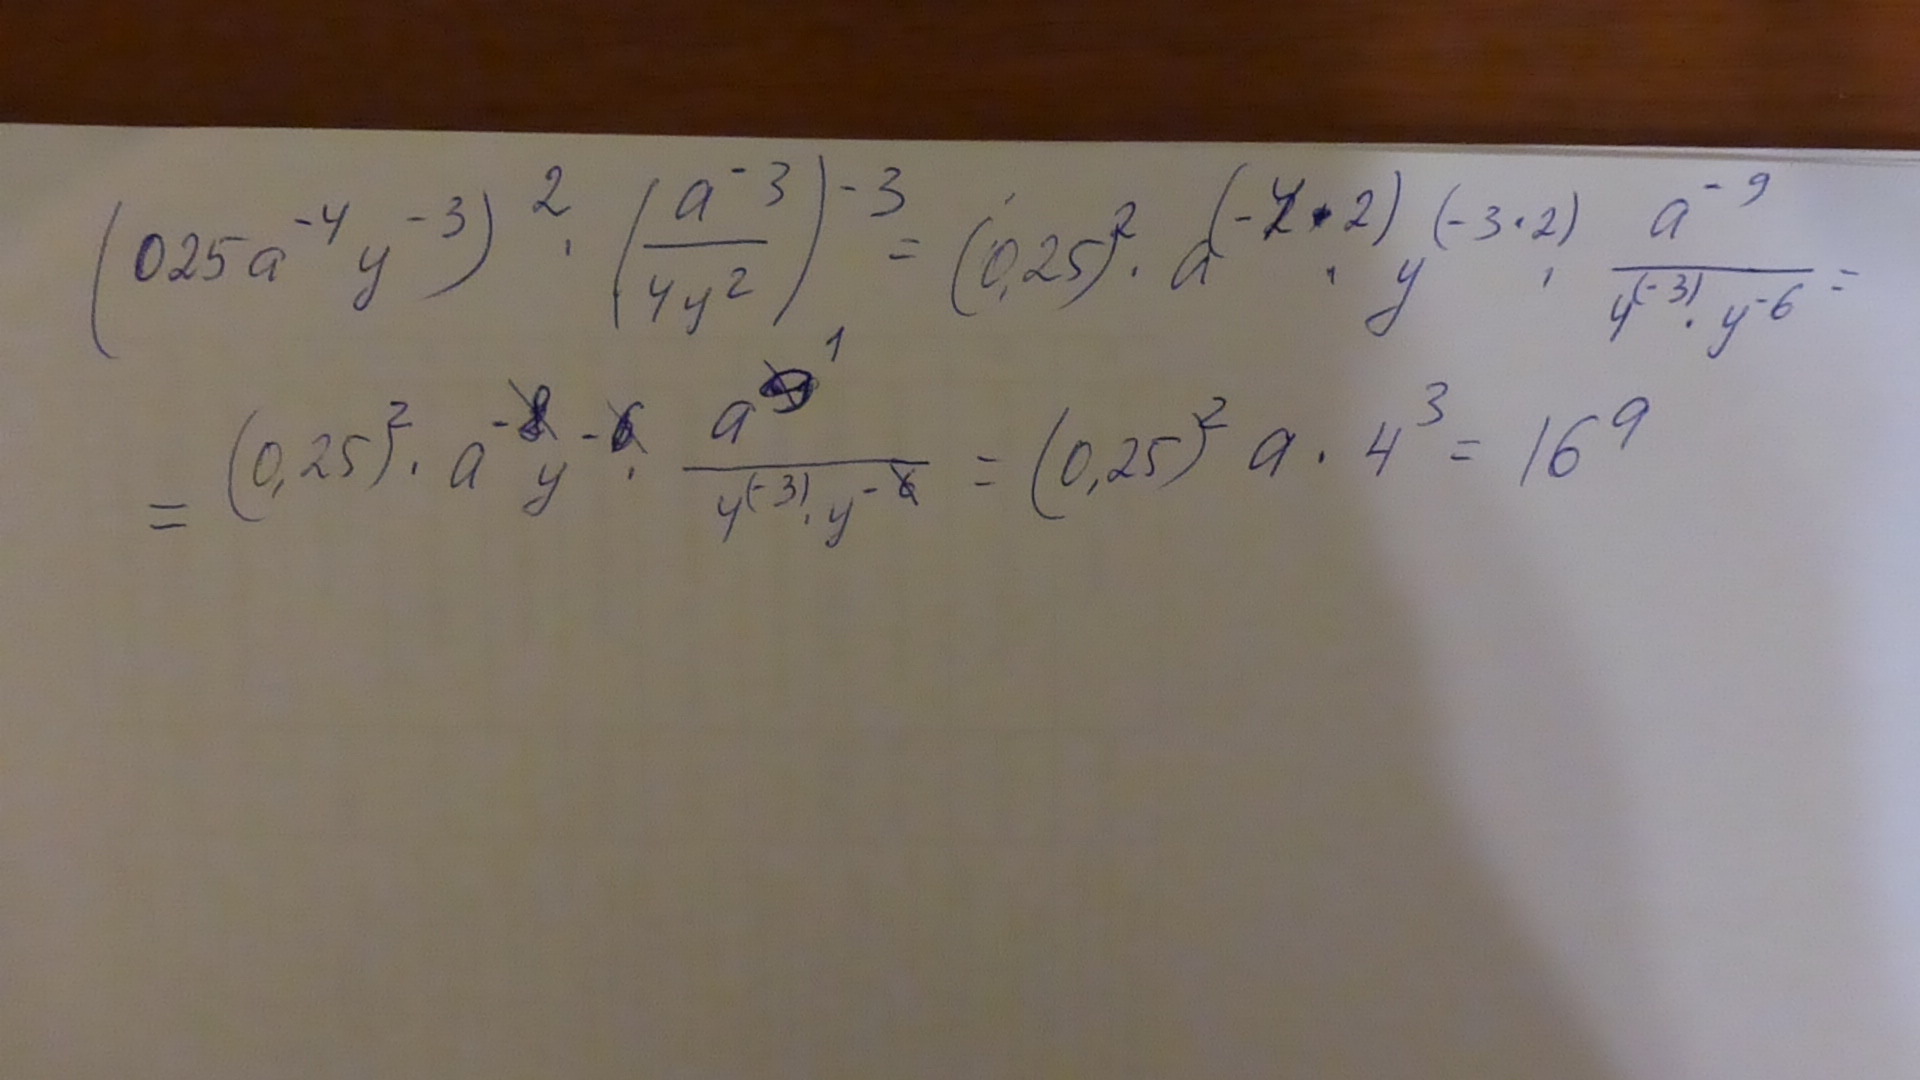 (025a⁻⁴y⁻³)² · (a⁻³/4y²)⁻³ = (0,25)² · a⁽⁻⁴·²⁾ · y⁽⁻³·²⁾ · a⁻⁹/4⁽⁻³⁾ · y⁻⁶ =
= (0,25)² · a⁻⁸ y⁻⁶ · a¹/4⁽⁻³⁾ · y⁻⁶ = (0,25)² a · 4³ = 16⁹